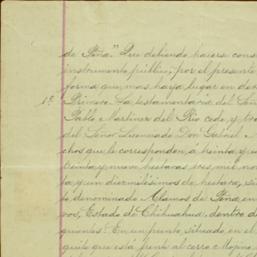 de Peña." Que debiendo hacerse cons
instrumento público, por el presente
forma que mas haya lugar en der
1ª Primera. La testamentaria del Señ
Pablo Martinez del Rio cede y tra
del Señor Licenciado Don Gabriel
chos que le corresponden á treinta y
centa y nueve hectaras seis mil nov
ta y un diezmilésimos de hectara, se
denominado Alamos de Peña en
vos, Estado de Chihuahua, dentro d
guientes: En un punto situado en el
quito que está frente al cerro Mojino